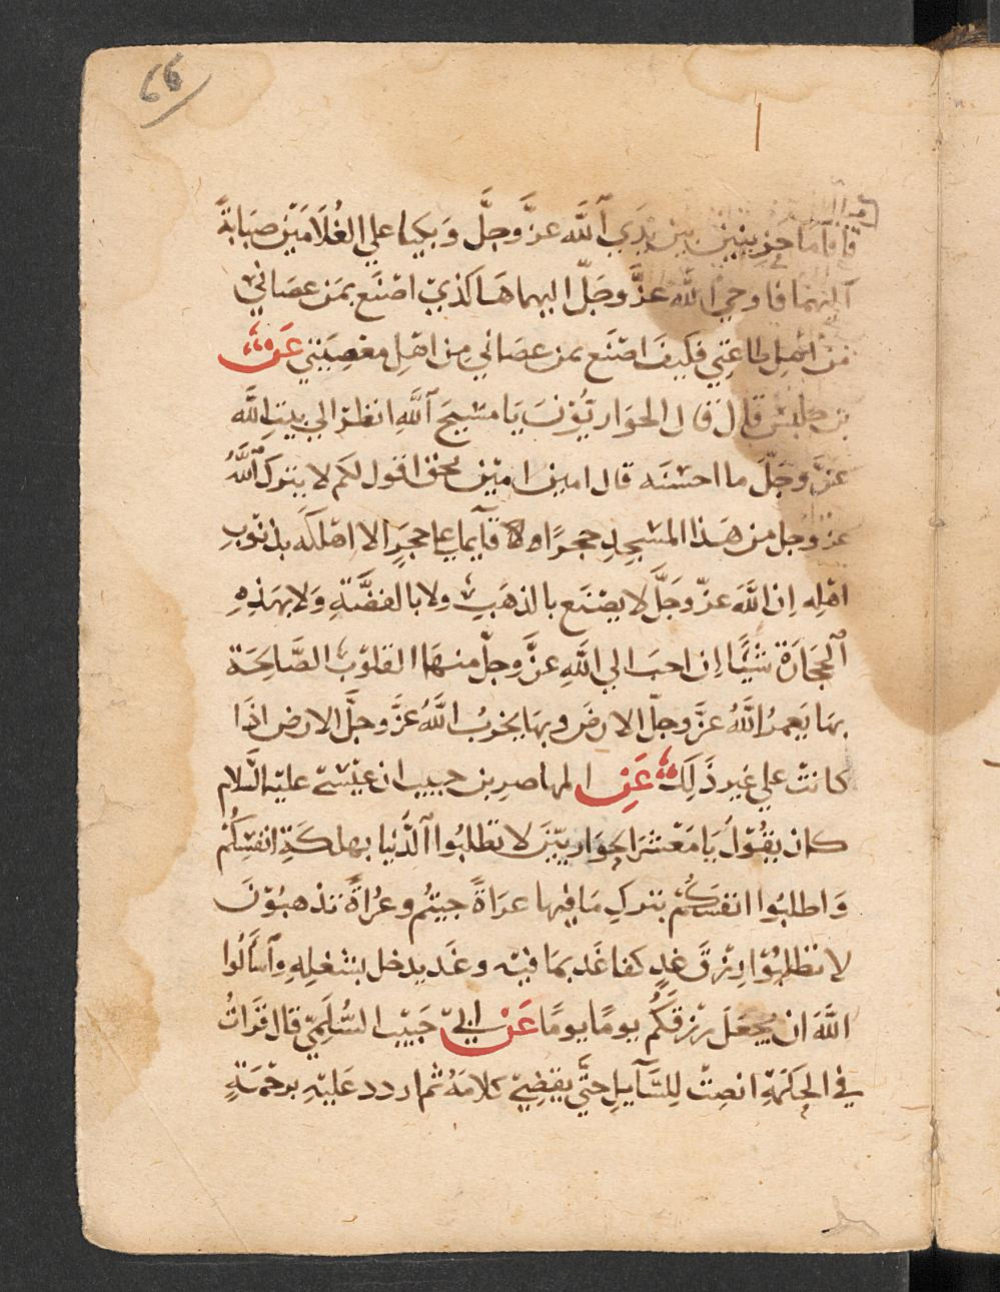 66
فاقاما حزينين بين يدي الله عزَّ وجلَّ وَبكيا علي الغُلَامَيْن صَبَابَةً
اليهما فاوحي الله عزَّ وجَلّ اليهما هَاكذي اصْنَع بمَن عصَاني
مِن اهل طاعَتي فكيفَ اصْنَع بمن عصَاني مِن اهْلِ معْصِيَتي عَن
بن حلبس قال قال الحوَاريّوُنَ يَا مسيحَ اللَّه انظرْ الي بيت اللَّه
عزَّ وجَلّ ما احسَنَه قال امين امين بحق اقول لكم لا يترك اللَّهُ
عزّ وجل من هَذا المسْجِدِ حجرًا قآيما علي حجرٍ الا اهْلكَه بذنوبِ
اهْلِه اِن اللَّهَ عزّ وجَلَّ لا يصْنَع بالذهَبِ ولا بالفضَّةِ وَلا بهَذِهِ
الحجَارَة شَيًْا اِن احبَ الي اللَّهِ عزَّ وجلّ منهَا القلوْبُ الصَّالِحَة
بهَا يَعمرُ اللَّهُ عزَّ وجلّ الارضَ وبهَا يخربُ اللَّهُ عزَّ وجلَّ الارض اذَا
كانتْ علي غير ذَلِكَ عَنِ المهاصِر بن حبيب ان عيْسيَ عليْه السَّلام
كان يقُوْلُ يَا مَعْشَرَ الحوَاريّيَن لا تطلبُوا الدُّنيا بهلكَةِ انفسِكُمْ
وَاطلبُوا انفسَكُمْ بتركِ مَا فيْها عرَاةً جيتُم وعُرَاةً تذهبُوْنَ
لا تطلبُوْا رِزْقَ غدٍ كفا غَد بمَا فيْه وغَد يدخل بشغلِهِ وَاسْألُوا
اللَّهَ ان يجْعَلَ رِزْقَكُم يومًا يومًا عَنْ ابي حَبيْبِ السُّلَميّ قال قرَاتُ
في الحِكمَةِ انصِتْ لِلسَّآيِلِ حتَّي يقضيَ كلامَهُ ثم اردد عَليْهِ برحمَةٍ